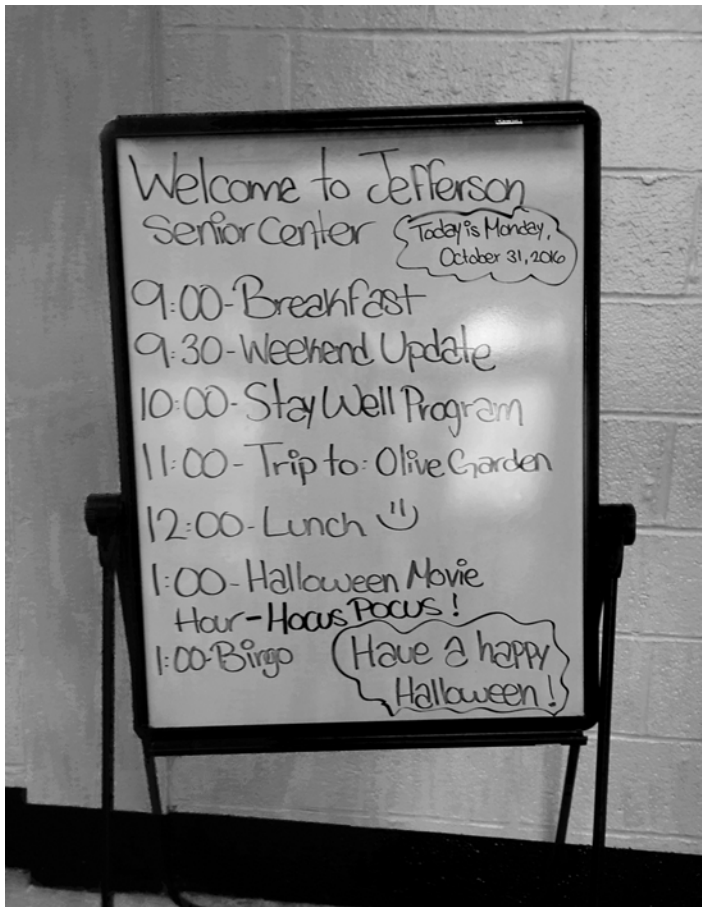 Welcome to Jefferson
Senior Center
Today is Monday,
October 31, 2016
9:00-Breakfast
9:30-Weekend Update
10:00-Stay Well Program
11:00-Trip to: Olive Garden
12:00-Lunch
1:00-Halloween Movie
Hour-Hocus Pocus!
1:00-Bingo
Have a happy
Halloween!